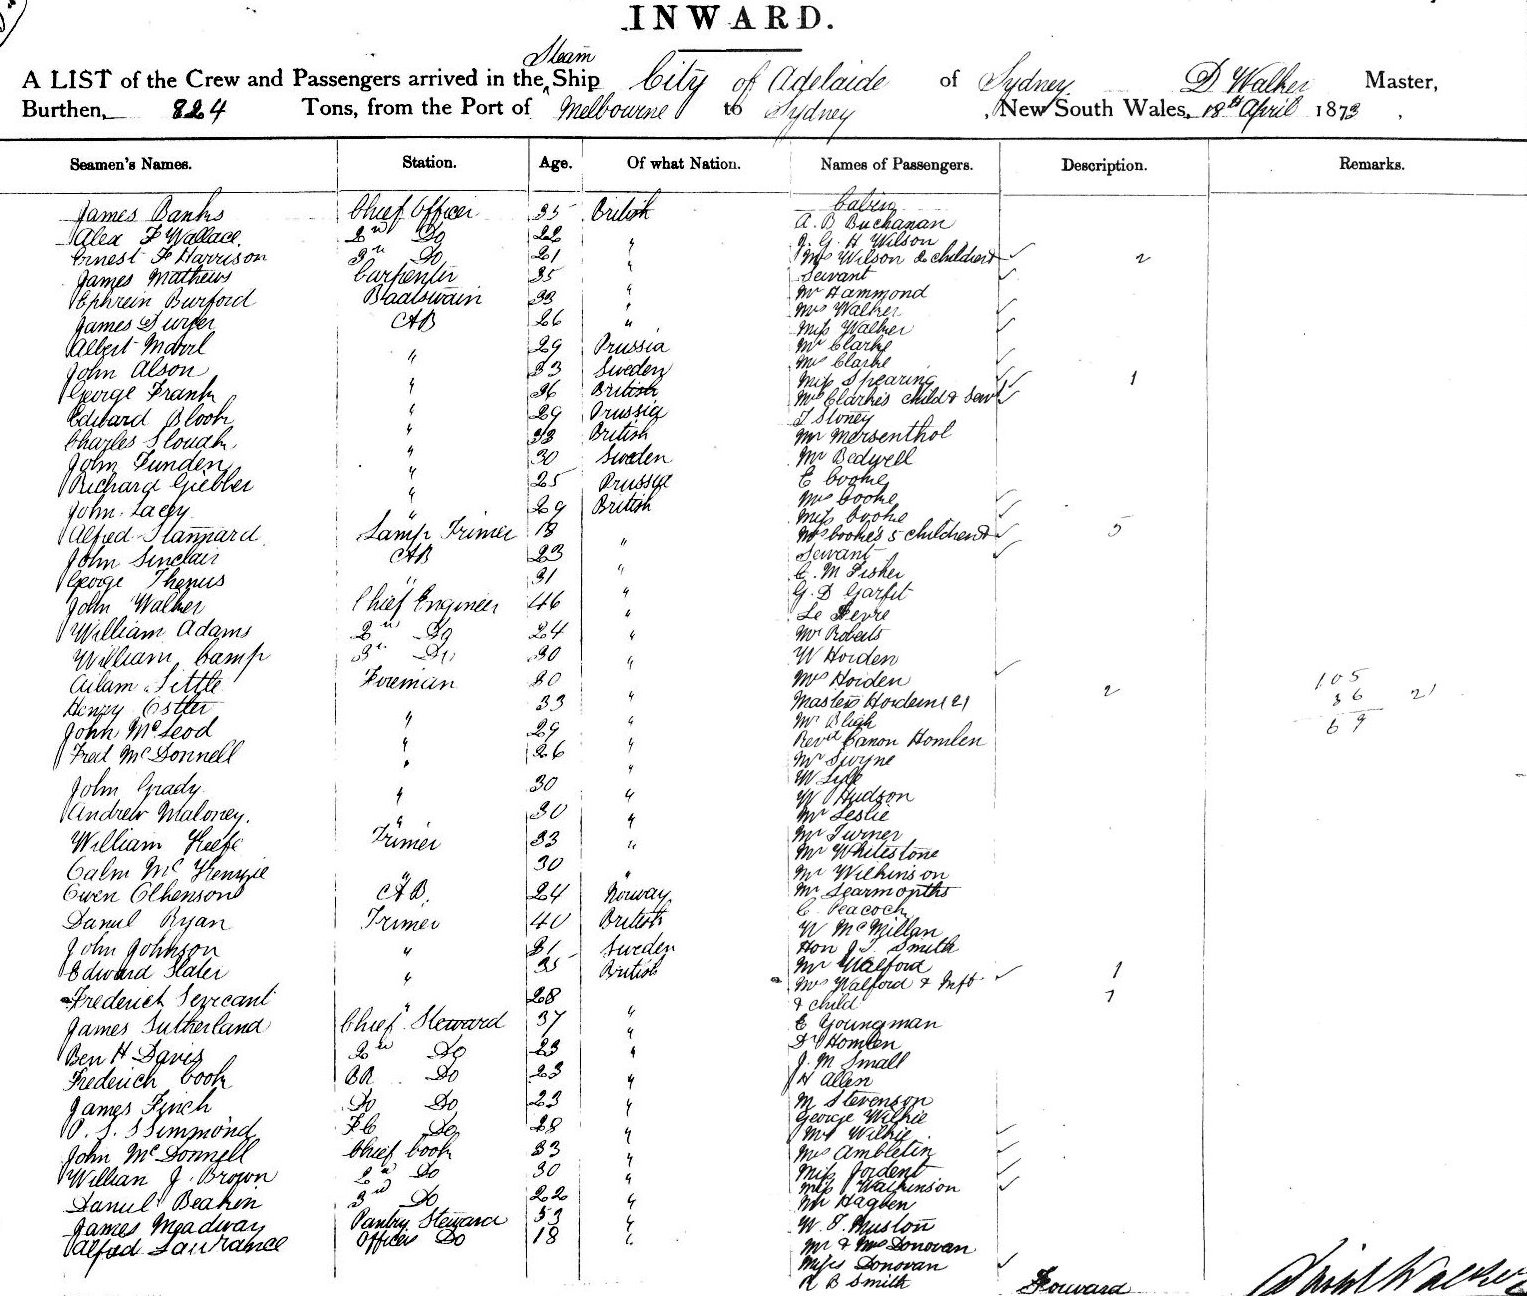 INWARD.
Steam
A LIST of the Crew and Passengers arrived in the Ship City of Adelaide of Sydney D Walker Master,
Burthen, 824 Tons, from the Port of Melbourne to Sydney, New South Wales, 18th April 1873
Seamen's Names. Station. Age. Of what Nation. Names of Passengers. Description. Remarks.
James Banks Chief Officer 35 British
Alex F Wallace 2nd Do 22 "
Ernest F Harrison 3rd Do 21
James Mathews Carpenter 35 "
Ephrein Burford Boatswain 33 "
James AB 26 "
Albert 29 Prussia
John Alson " 33 Sweden
George Frank " 36 British
Edward Block " 29 Prussia
Charles Slough " 33 British
John Funden " 30 Sweden
Richard Giebber " 25
John Lacey " 29 British
Alfred Stannard Lamp Trimer 18 "
John Sinclair AB 23
George Thenus " 31 "
John Walker Chief Engineer 46 "
William Adams 2nd Do 24 "
William Camp 3rd Do 30 "
Adam Little Foreman 30 "
Henry 33 "
John McLeod " 29 "
Fred McDonnell " 26 "
John Grady " 30 "
Andrew Maloney " 30 "
William Keefe Trimer 33 "
Calm McKenzie " 30 "
Owen AB 24 Norway
Daniel Ryan Trimer 40 British
John Johnson " 31 Sweden
Edward Slater " 35 British
Frederick " 28 "
James Sutherland Chief Steward 37 "
Ben H Davis 2nd Do 23 "
Frederich Cook Do 23 "
James Finch Do Do 23 "
P. S. Simmond FC Do 28 "
John McDonnell Chief Cook 33 "
William J. Brown 2nd Do 30 "
Daniel Beakin 3rd Do 22 "
James Meadway Pantry Steward 53 "
Alfred Laurance Officers Do 18 "
Cabin
A. B Buchanan
J. G. H Wilson
Mrs Wilson 2 children & 2
Servant
Mr Hammond
Mrs Walker
Miss Walker
Mr Clarke
Mrs Clarke
Miss Spearing 1
Mrs Clarke's child & Servt
T Stoney
Mr Mersenthol
Mr Bedwell
E Cooke
Mrs Cooke
Miss Cooke
Mrs Cooke's 5 children & 5
Servant
C. M Fisher
G. D Garfit
Le Fevre
Mr Roberts
W Horden
Mrs Horden
Masters Hordern (2) 2
Mr Bligh
Revd Canon Homlen
Mr Swyne
W Lyle
W Hudson
Mr Leslie
Mr Turner
Mr Whitestone
Mr Wilkinson
Mr Learmonths
C. Peacock
W McMillan
Hon J. S. Smith
Mr Walford
Mrs Walford & Inft 1
& child 1
E Youngman
Dr Homlen
J. M Small
H Allen
M Stevenson
George Wilkie
Mrs Wilkie
Mrs Ambletin
Miss Jordent
Miss Watkinson
Mr Hagben
W. F. Huston
Mr & Mrs Donovan
Misses Donovan
R B Smith
105
36 21
69
Forward
David Walker